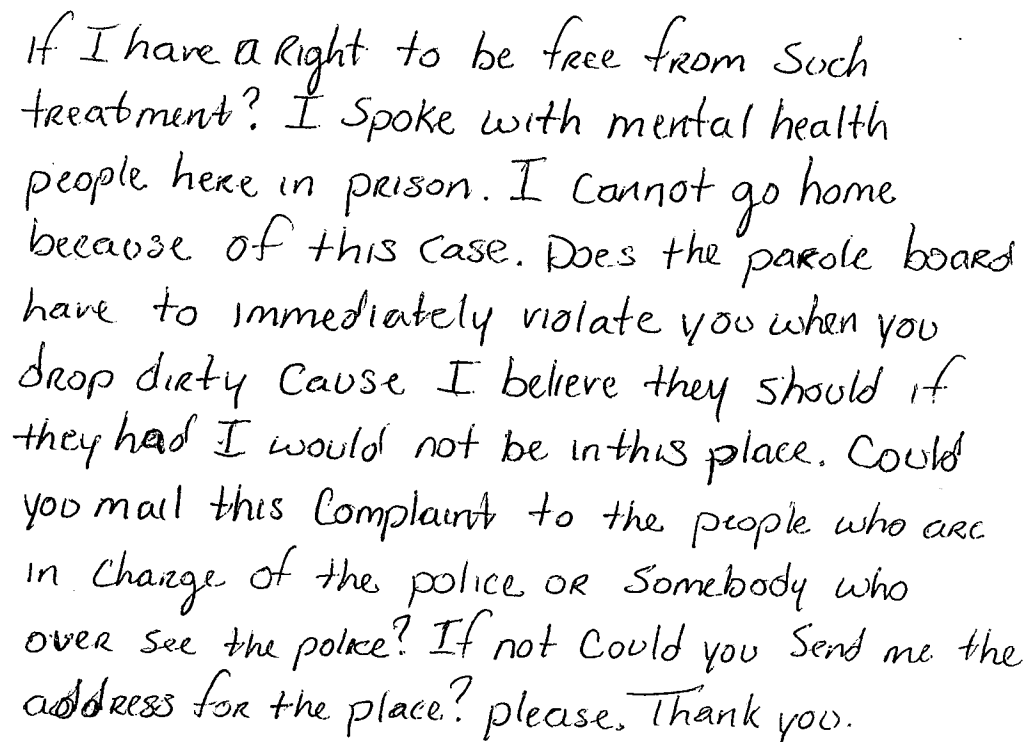 If I have a Right to be free from Such
treatment? I Spoke with mental health
people here in prison. I Cannot go home
because of this Case. Does the parole board
have to immediately violate you when you
drop dirty Cause I believe they should if
they had I would not be in this place. Could
you mail this Complaint to the people who are
in Charge of the police or Somebody who
over see the police? If not Could you Send me the
address for the place? please. Thank you.